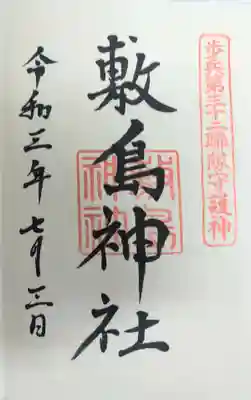 歩兵第三十二聯隊守護神
敷島神社
令和三年七月三日